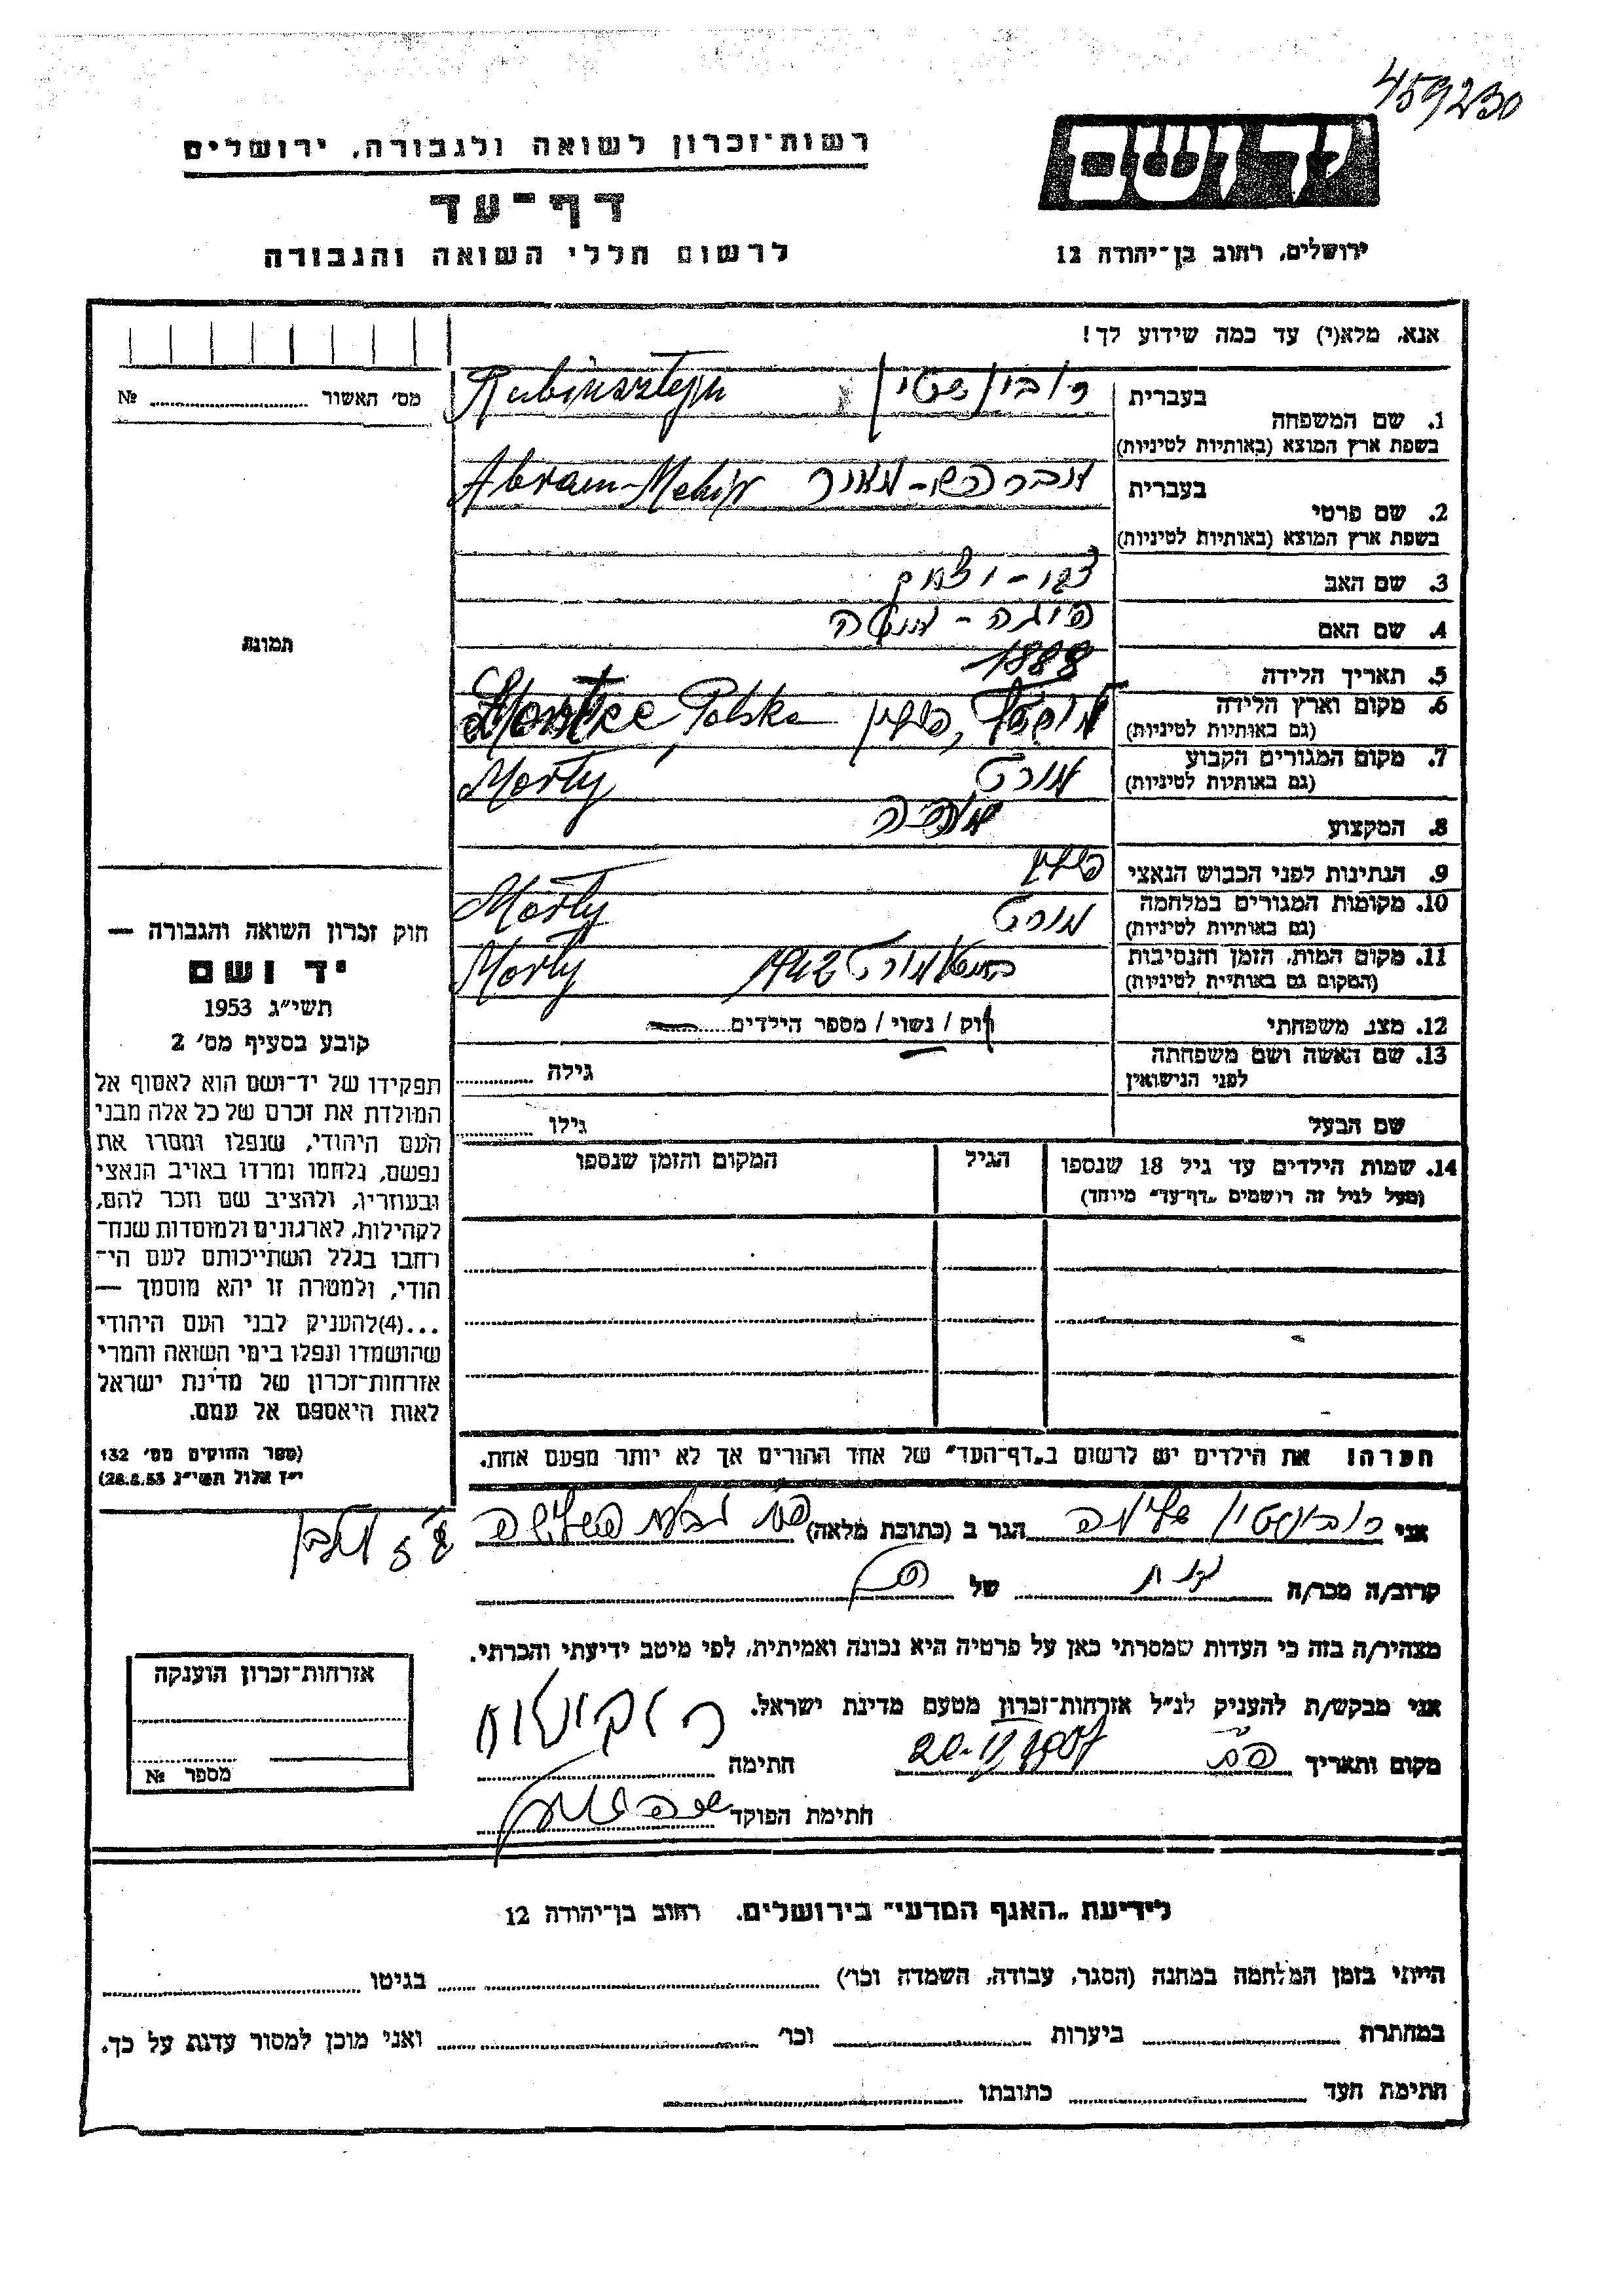 459230
יד ושם
רשות־זכרון לשואה ולגבורה, ירושלים
דף־עד
ירושלים, רחוב בן־יהודה 12
לרשום חללי השואה והגבורה
אנא, מלא(י) עד כמה שידוע לך!
מס׳ האשור № ........
תמונה
בעברית רובינשטיין Rubinsztejn
1. שם המשפחה
בשפת ארץ המוצא (באותיות לטיניות)
בעברית אברהם-מאיר Abram-Mehir
2. שם פרטי
בשפת ארץ המוצא (באותיות לטיניות)
3. שם האב
4. שם האם
5. תאריך הלידה 1888
6. מקום וארץ הלידה פולין Polska
(גם באותיות לטיניות)
7. מקום המגורים הקבוע מורט Morty
(גם באותיות לטיניות)
8. המקצוע
9. הנתינות לפני הכבוש הנאצי פולין
10. מקומות המגורים במלחמה מורט Morty
(גם באותיות לטיניות)
11. מקום המות, הזמן והנסיבות מורט 1942 Morty
(המקום גם באותיות לטיניות)
12. מצב משפחתי רוק / נשוי / מספר הילדים ........
13. שם האשה ושם משפחתה לפני הנישואין גילה ........
שם הבעל גילו ........
14. שמות הילדים עד גיל 18 שנספו הגיל המקום והזמן שנספו
(מעל לגיל זה רושמים „דף־עד״ מיוחד)
חוק זכרון השואה והגבורה —
יד ושם
תשי״ג 1953
קובע בסעיף מס׳ 2
תפקידו של יד־ושם הוא לאסוף אל
המולדת את זכרם של כל אלה מבני
העם היהודי, שנפלו ומסרו את
נפשם, נלחמו ומרדו באויב הנאצי
ובעוזריו, ולהציב שם וזכר להם,
לקהילות, לארגונים ולמוסדות שנח־
רחבו בגלל השתייכותם לעם הי־
הודי, ולמטרה זו יהא מוסמך —
...(4)להעניק לבני העם היהודי
שהושמדו ונפלו בימי השואה והמרי
אזרחות־זכרון של מדינת ישראל
לאות היאספם אל עמם.
(ספר החוקים מס׳ 132
י״ז אלול תשי״ג 28.8.53)
הערה! את הילדים יש לרשום ב„דף־העד״ של אחד ההורים אך לא יותר מפעם אחת.
אני רובינשטיין שלימה הגר ב (כתובת מלאה)
קרוב/ה מכר/ה של
מצהיר/ה בזה כי העדות שמסרתי כאן על פרטיה היא נכונה ואמיתית, לפי מיטב ידיעתי והכרתי.
אני מבקש/ת להעניק לנ״ל אזרחות־זכרון מטעם מדינת ישראל.
מקום ותאריך חתימה
חתימת הפוקד
אזרחות־זכרון הוענקה
מספר №
לידיעת „האגף המדעי״ בירושלים. רחוב בן־יהודה 12
הייתי בזמן המלחמה במחנה (הסגר, עבודה, השמדה וכו׳) ........ בגיטו ........
במחתרת ........ ביערות ........ וכו׳ ........ ואני מוכן למסור עדות על כך.
חתימת העד ........ כתובתו ........